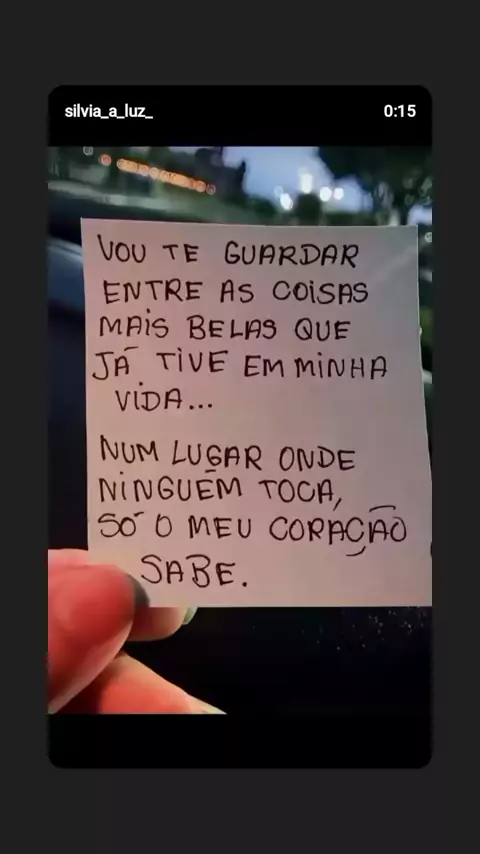 silvia_a_luz_
0:15
VOU TE GUARDAR
ENTRE AS COISAS
MAIS BELAS QUE
JÁ TIVE EM MINHA
VIDA...
NUM LUGAR ONDE
NINGUÉM TOCA,
SÓ O MEU CORAÇÃO
SABE.